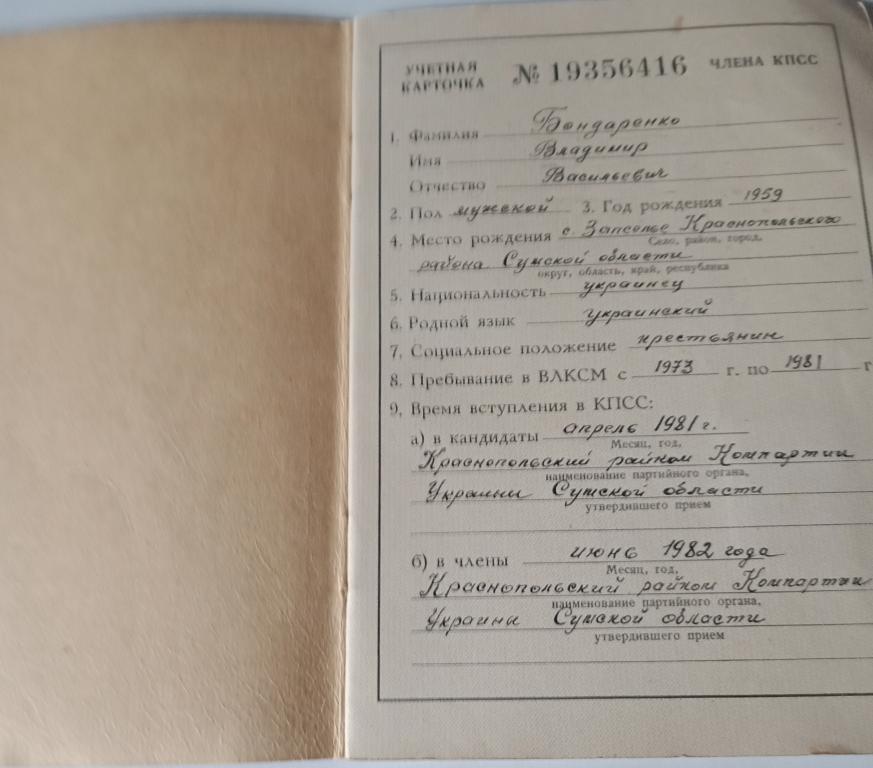 УЧЕТНАЯ КАРТОЧКА № 19356416 ЧЛЕНА КПСС
1. Фамилия Бондаренко
Имя Владимир
Отчество Васильевич
2. Пол мужской 3. Год рождения 1959
4. Место рождения с. Запселье Краснопольского
Село, район, город,
района Сумской области
округ, область, край, республика
5. Национальность украинец
6. Родной язык украинский
7. Социальное положение крестьянин
8. Пребывание в ВЛКСМ с 1973 г. по 1981 г
9. Время вступления в КПСС:
а) в кандидаты апрель 1981 г.
Месяц, год,
Краснопольский райком Компартии
наименование партийного органа,
Украины Сумской области
утвердившего прием
б) в члены июнь 1982 года
Месяц, год,
Краснопольский райком Компартии
наименование партийного органа,
Украины Сумской области
утвердившего прием